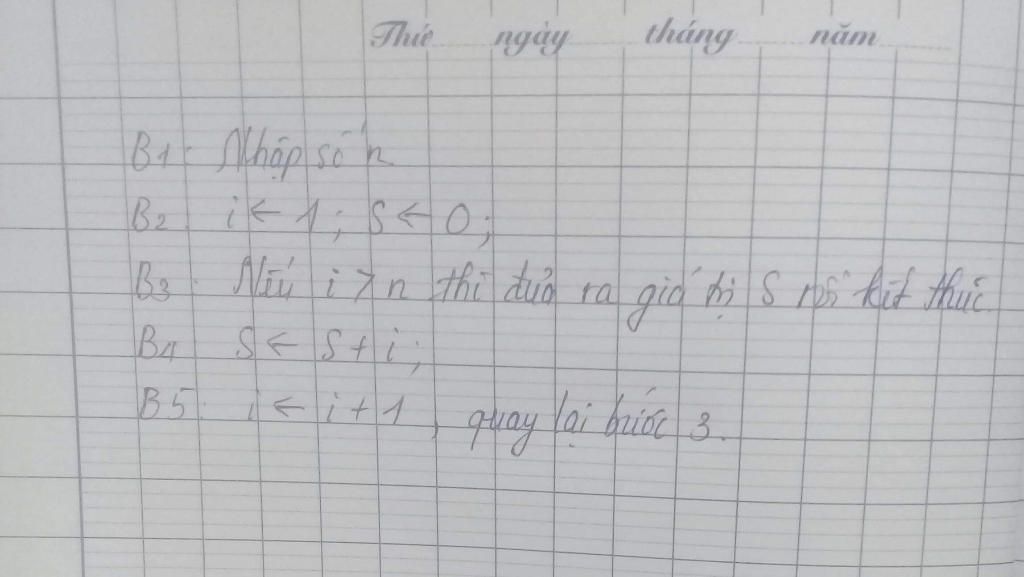 Thứ ngày tháng năm
B1: Nhập số n
B2: i ← 1; S ← 0;
B3: Nếu i > n thì đưa ra giá trị S rồi kết thúc.
B4: S ← S + i;
B5: i ← i + 1, quay lại bước 3.